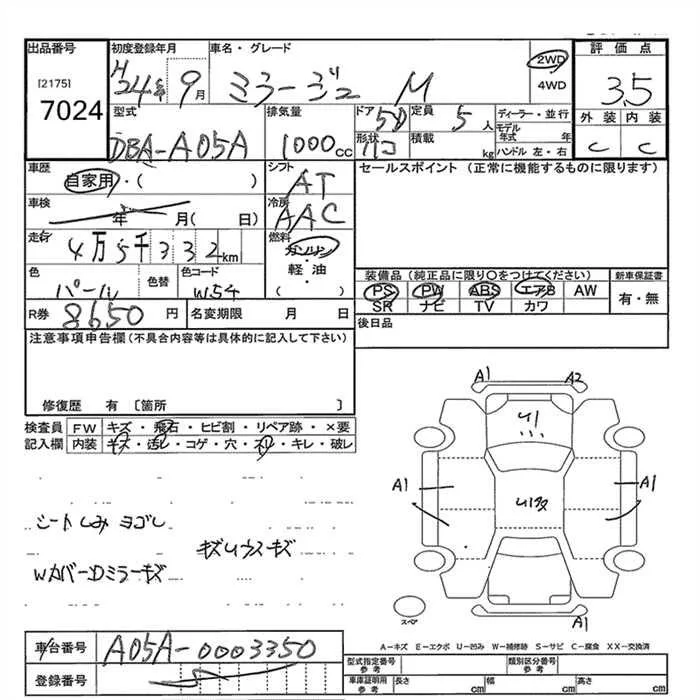 出品番号
[2175]
7024
初度登録年月
H24年 9月
車名・グレード
ミラージュ M
2WD
4WD
評価点
3.5
外装 内装
C C
型式
DBA-A05A
排気量
1000cc
ドア 5D
形状 ハコ
定員 5人
積載 kg
ディーラー・並行
モデル年式 年
ハンドル 左・右
車歴
自家用・( )
シフト
AT
セールスポイント (正常に機能するものに限ります)
車検
年 月( 日)
冷房
AAC
走行
4万5千332km
燃料
ガソリン
軽・油
( )
色
パール
色替
色コード
W54
装備品(純正品に限り○をつけてください)
PS PW ABS エアB AW
SR ナビ TV カワ
新車保証書
有・無
R券 8650円
名変期限 月 日
後日品
注意事項申告欄(不具合内容等は具体的に記入して下さい)
修復歴 有 〔箇所 〕
検査員記入欄
FW キズ・飛石・ヒビ割・リペア跡・×要
内装 キズ・汚レ・コゲ・穴・スレ・キレ・破レ
シートしみ ヨゴレ
Wカバー Dミラーキズ
A1 A2
A1 A1
A1
スペア
A-キズ E-エクボ U-凹み W-補修跡 S-サビ C-腐食 XX-交換済
車台番号 A05A-0003350
登録番号
型式指定番号 参考
類別区分番号 参考
車庫証明用 参考
長さ cm 幅 cm 高さ cm